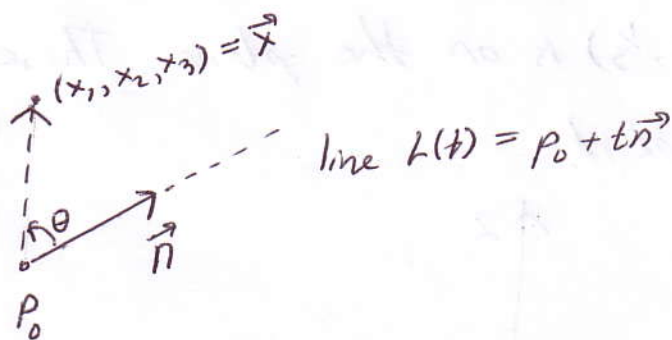 (x₁, x₂, x₃) = x⃗
line L(t) = p₀ + tn⃗
θ
n⃗
P₀